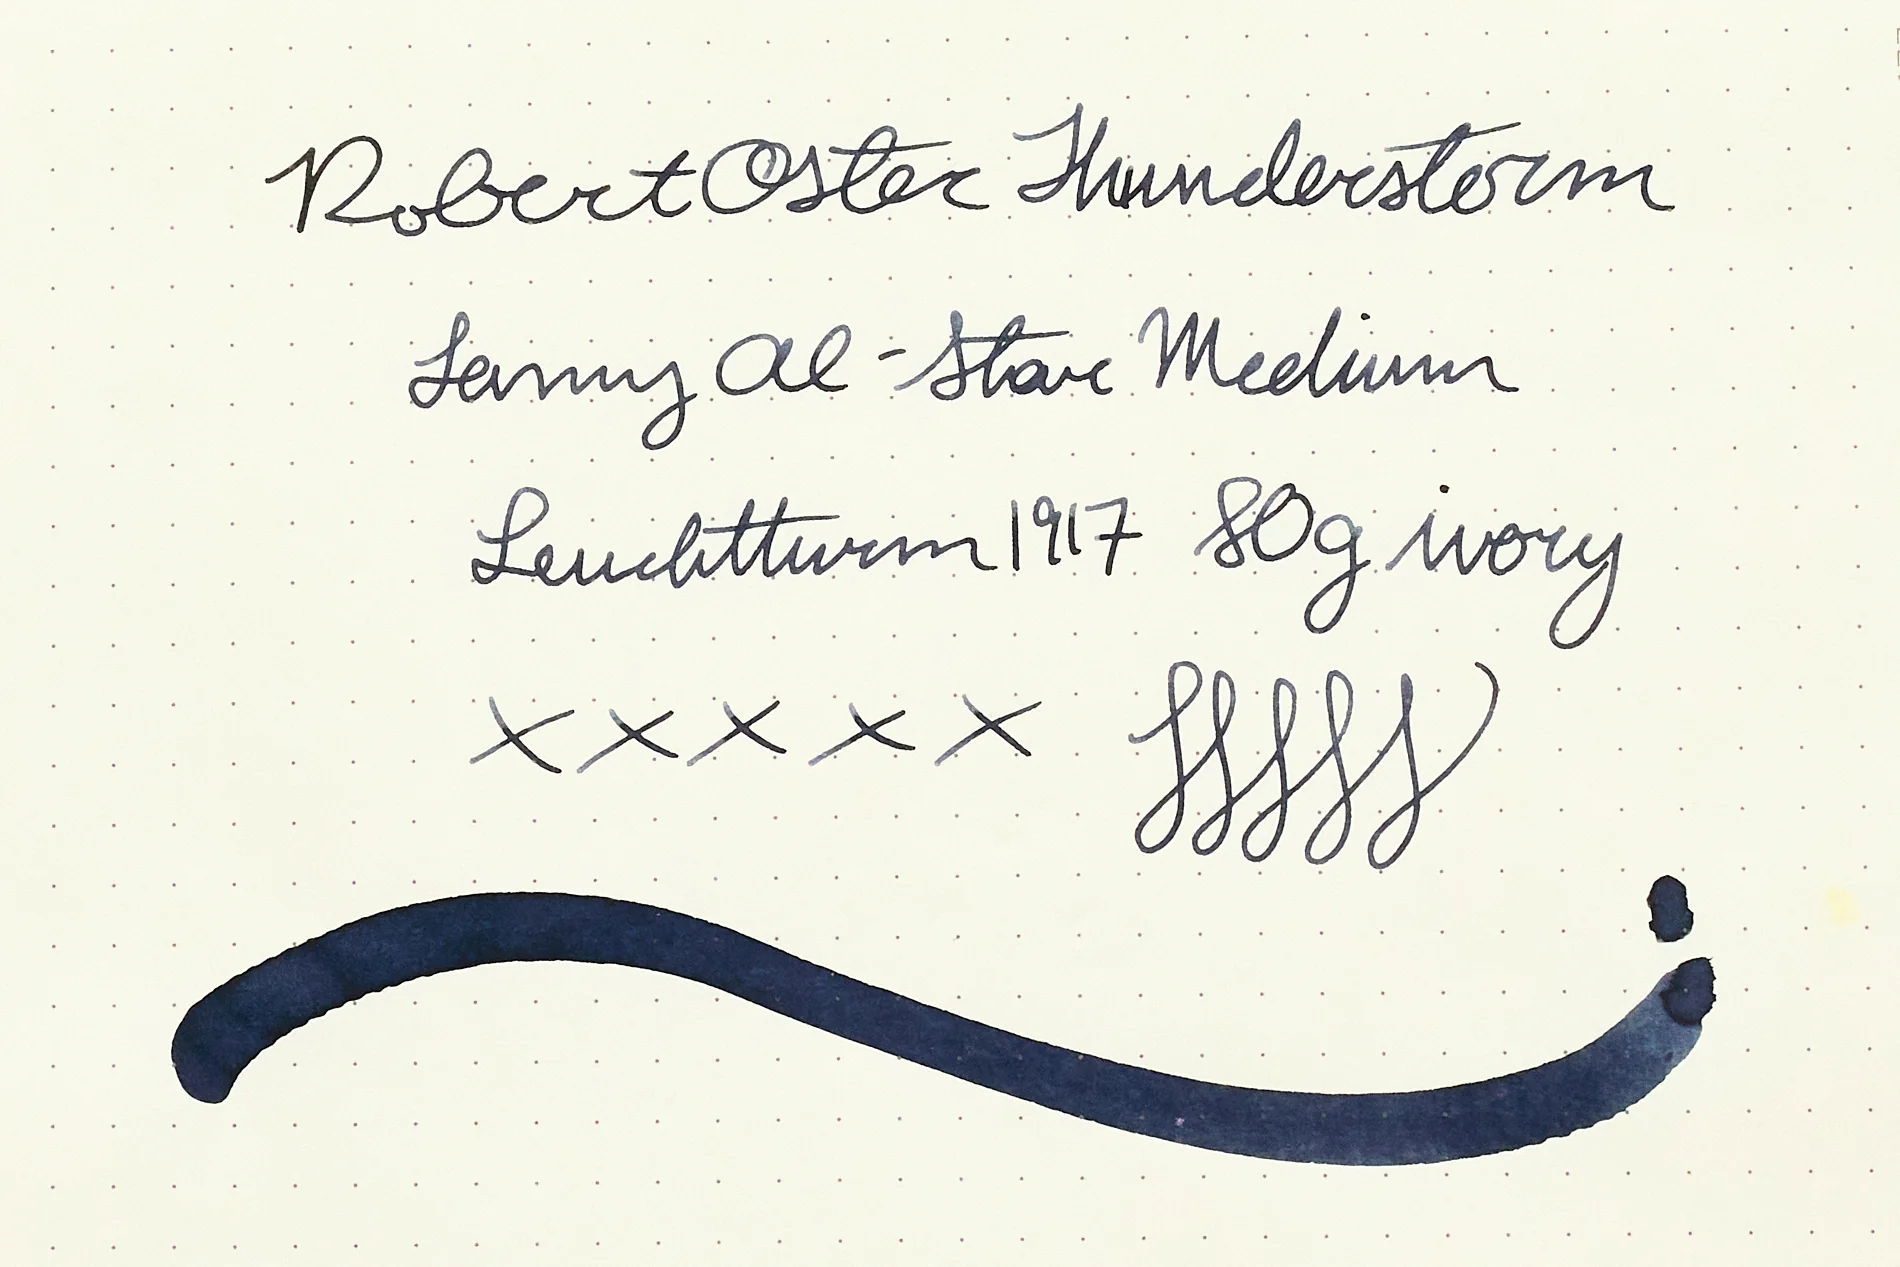 Robert Oster Thunderstorm
Lamy Al-Star Medium
Leuchtturm 1917 80g ivory
x x x x x